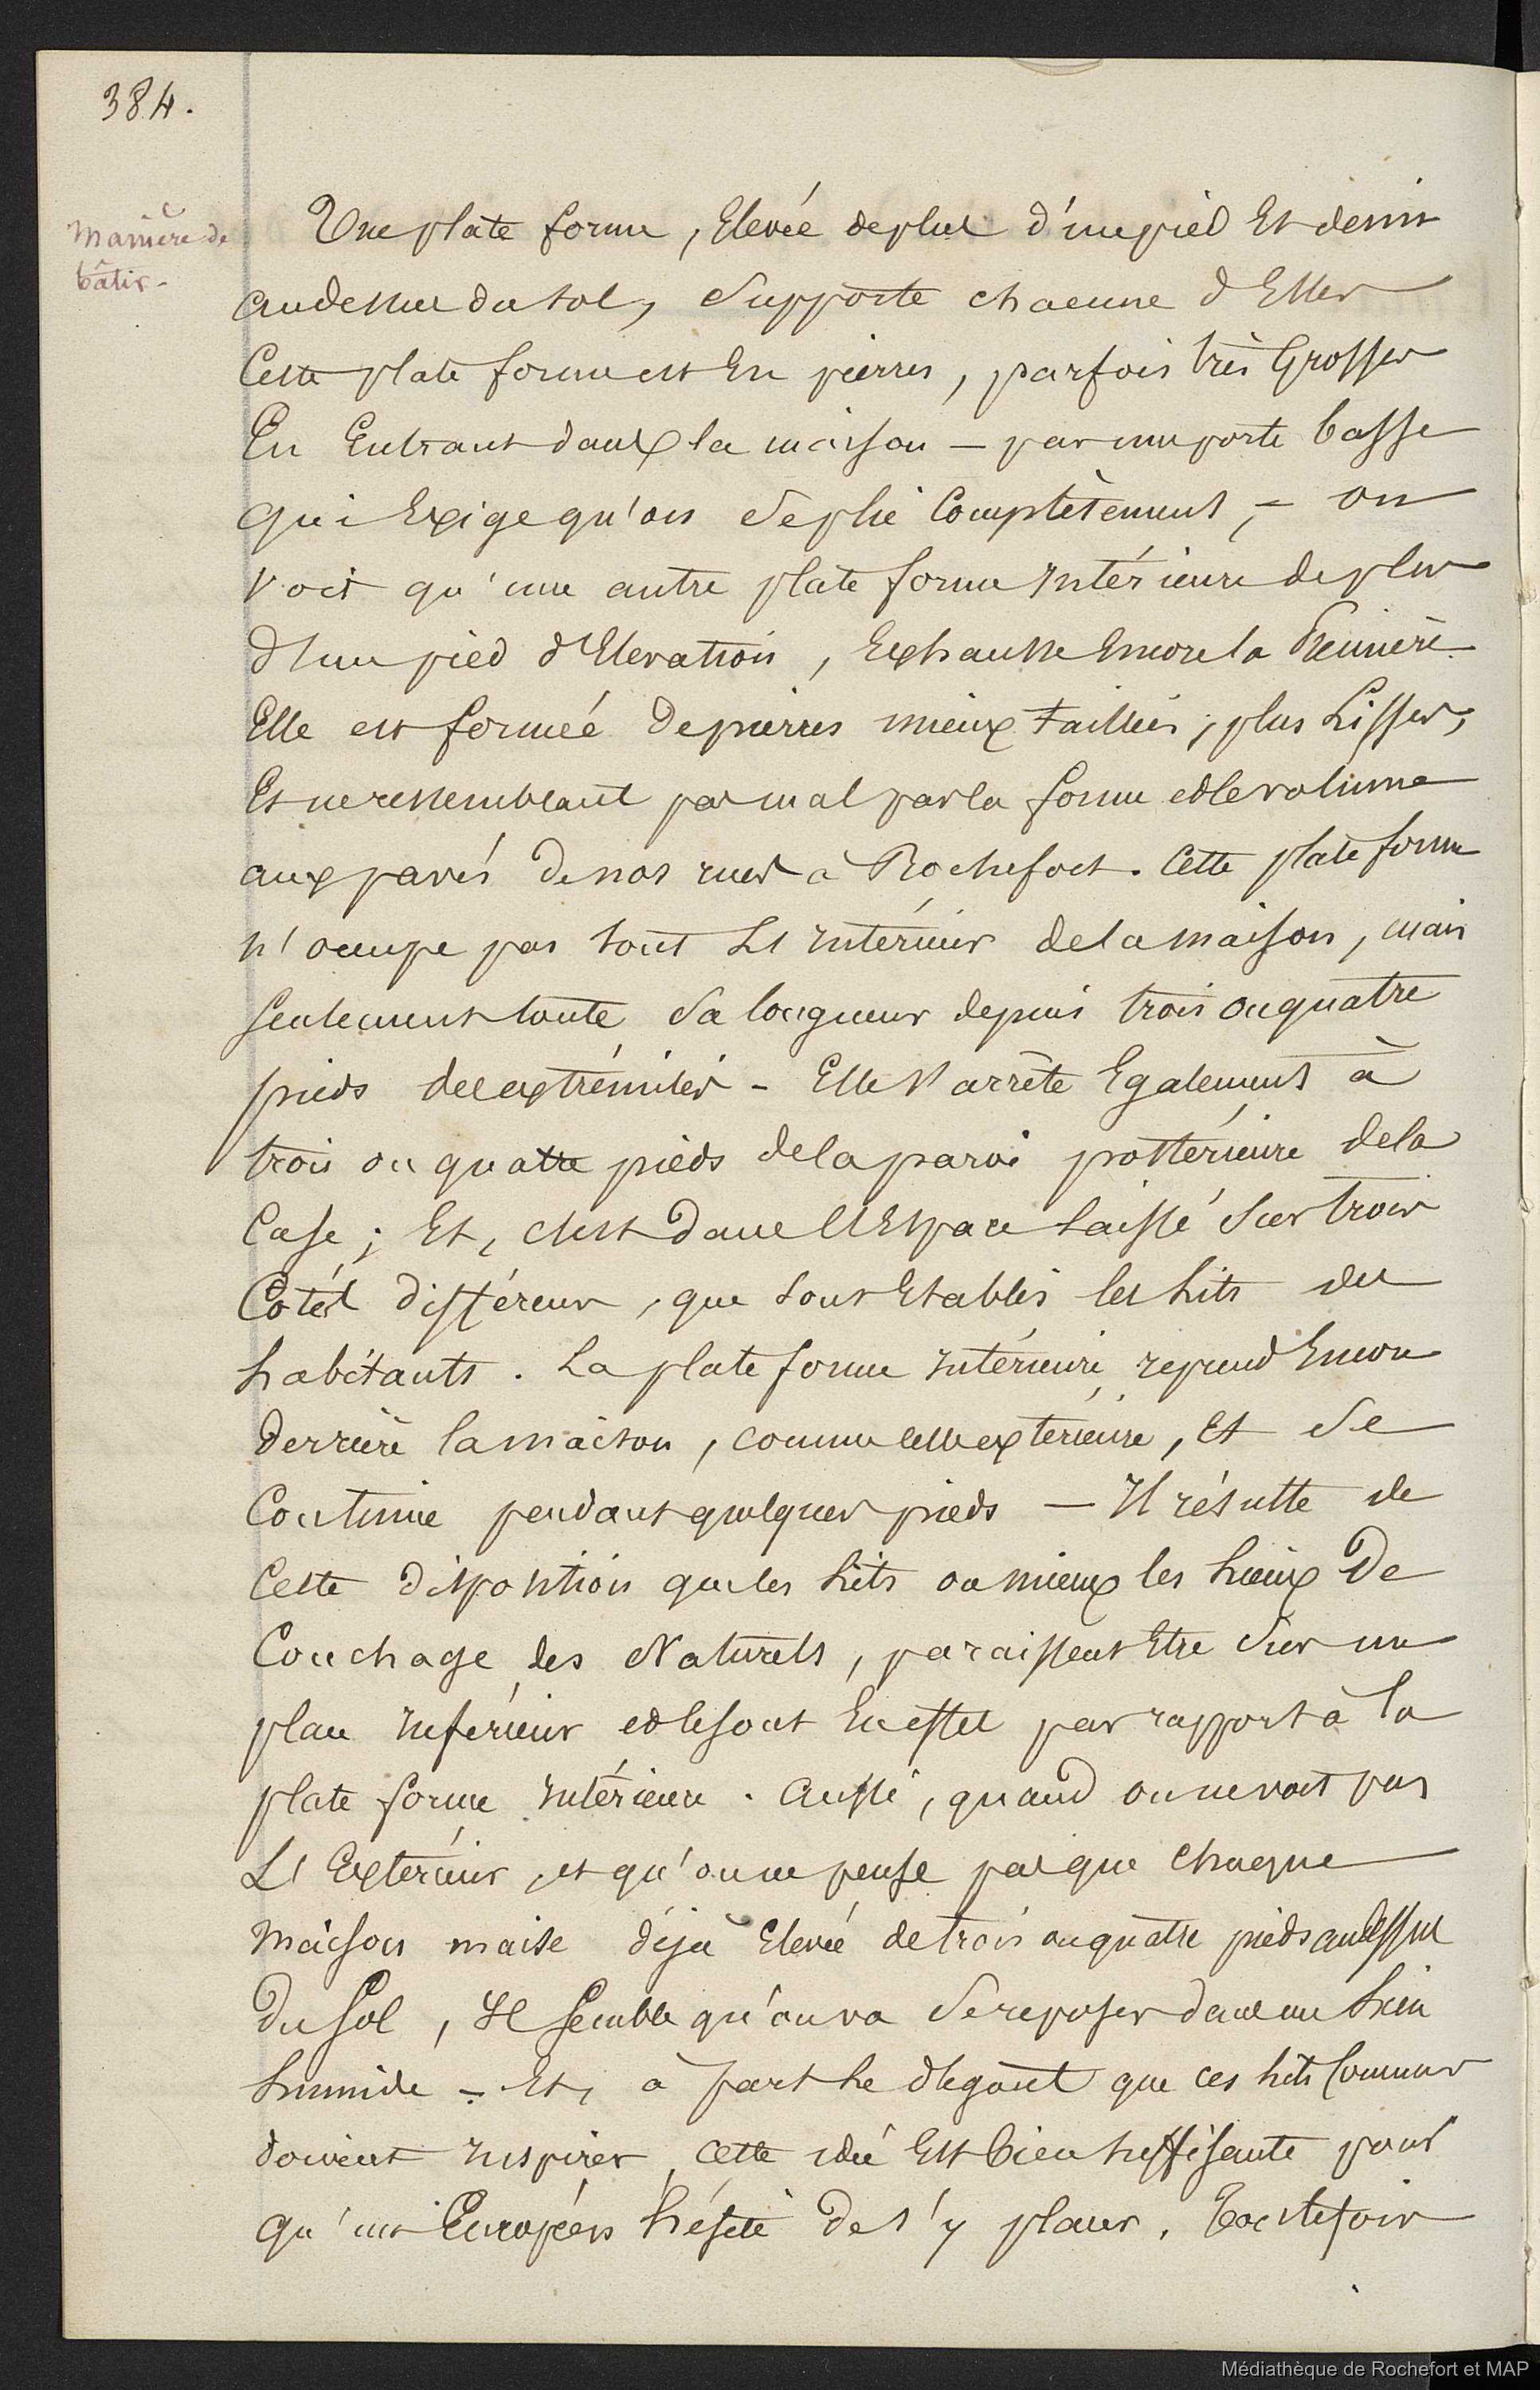 384.
Manière de
bâtir-
Une plate forme, Elevée de plus d'un pied Et demi
au dessus du sol, Supporte chacune d'Elles
Cette plate forme est En pierres, parfois très Grosses
En Entrant dans la maison - par une porte basse
qui Exige qu'on se plie Complètement, - on
voit qu'une autre plate forme intérieure de plus
d'un pied d'Elevation, Exhausse Encore la Première
Elle est formée de pierres mieux taillées, plus Lisses,
Et ne ressemblant pas mal par la forme et le volume
aux pavés de nos rues à Rochefort. Cette plate forme
n'occupe pas tout L'intérieur de la maison, mais
seulement toute sa longueur depuis trois ou quatre
pieds des extrémités - Elle s'arrête Egalement à
trois ou quatre pieds de la paroi postérieure de la
Case; Et, c'est dans l'Espace laissé sur trois
Cotés différents, que sont Etablis les lits des
habitants. La plate forme intérieure reprend Encore
derrière la maison, comme celle extérieure, Et se
Continue pendant quelques pieds - Il résulte de
Cette disposition que les lits ou mieux les lieux de
Couchage des Naturels, paraissent Etre sur un
plan inférieur et le sont En effet par rapport à la
plate forme intérieure. Aussi, quand on ne voit pas
L'Extérieur, et qu'on ne pense pas que chaque
maison maise déjà Elevée de trois ou quatre pieds au dessus
du sol, Il semble qu'on va se reposer dans un lieu
humide - Et, à part le dégout que ces lits communs
doivent inspirer, cette idée Est bien suffisante pour
qu'un Européen hésite de s'y placer. Toutefois
Médiathèque de Rochefort et MAP